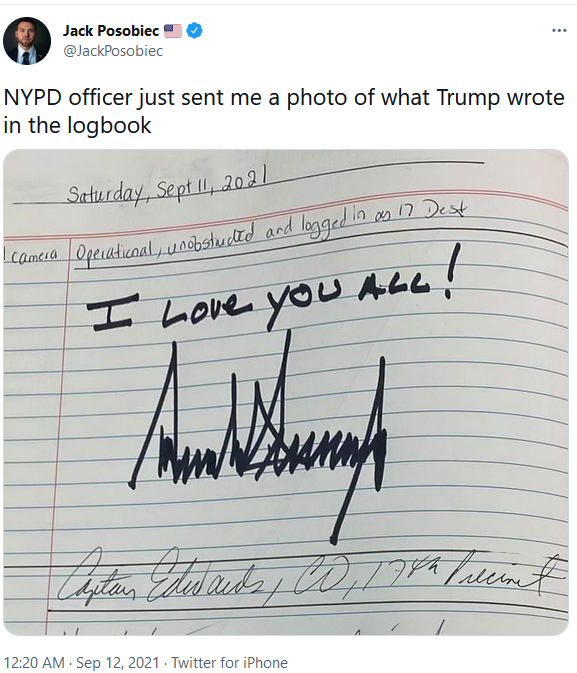 Jack Posobiec
@JackPosobiec
NYPD officer just sent me a photo of what Trump wrote
in the logbook
Saturday, Sept 11, 2021
camera Operational, unobstructed and logged in as 17 Dest
I Love you ALL!
Captain Edwards, CO, 17th Precinct
12:20 AM · Sep 12, 2021 · Twitter for iPhone